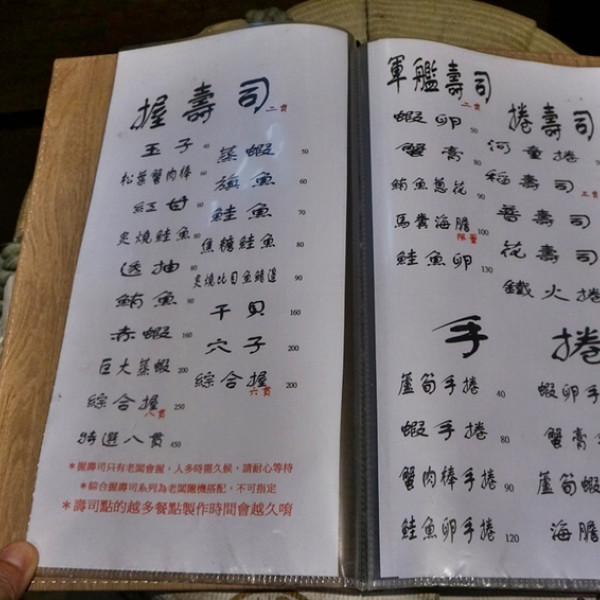 握壽司 二貫
玉子
松葉蟹肉棒
紅甘
炙燒鮭魚 80
透抽
鮪魚 90
赤蝦 160
巨大蒸蝦 200
綜合握 八貫 250
特選八貫 450
蒸蝦 50
旗魚 60
鮭魚 70
焦糖鮭魚 80
炙燒比目魚鰭邊 90
干貝 160
穴子 200
綜合握 六貫 200
*握壽司只有老闆會握,人多時需久候,請耐心等待
*綜合握壽司系列為老闆隨機搭配,不可指定
*壽司點的越多餐點製作時間會越久唷
軍艦壽司 二貫
蝦卵 50
蟹膏 80
鮪魚蔥花 90
馬糞海膽 100 限量
鮭魚卵 130
捲壽司
河童捲
稻壽司 三貫
普壽司
花壽司
鐵火捲
手捲
蘆筍手捲 40
蝦手捲 80
蟹肉棒手捲 90
鮭魚卵手捲 120
蝦卵手
蟹膏
蘆筍蝦
海膽